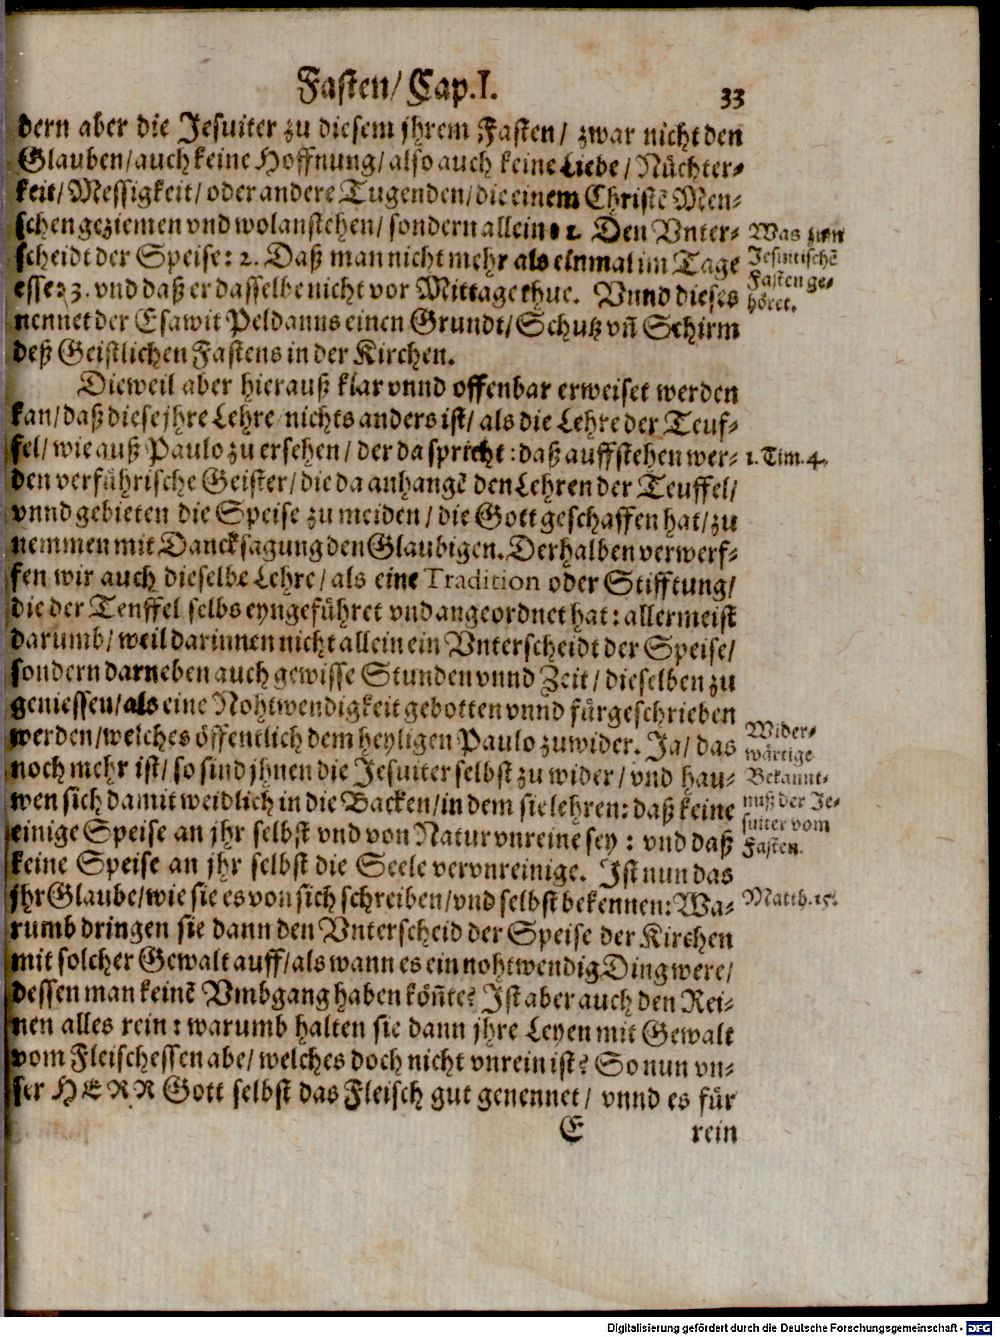 Fasten/ Cap. I. 33
dern aber die Jesuiter zu diesem jhrem Fasten/ zwar nicht den
Glauben/ auch keine Hoffnung/ also auch keine Liebe/ Nüchter-
keit/ Messigkeit/ oder andere Tugenden/ die einem Christē Men-
schen geziemen vnd wolanstehen/ sondern allein: 1. Den Vnter-
scheidt der Speise: 2. Daß man nicht mehr als einmal im Tage
esse: 3. vnd daß er dasselbe nicht vor Mittage thue. Vnnd dieses
nennet der Esawit Peldanus einen Grundt/ Schutz vñ Schirm
deß Geistlichen Fastens in der Kirchen.
Was zum
Jesuitischē
Fasten ge-
höret.
Dieweil aber hierauß klar vnnd offenbar erweiset werden
kan/ daß diese jhre Lehre nichts anders ist/ als die Lehre der Teuf-
fel/ wie auß Paulo zu ersehen/ der da spricht: daß aufstehen wer-
den verführische Geister/ die da anhangē den Lehren der Teuffel/
vnnd gebieten die Speise zu meiden/ die Gott geschaffen hat/ zu
nemmen mit Dancksagung den Glaubigen. Derhalben verwerf-
fen wir auch dieselbe Lehre/ als eine Tradition oder Stifftung/
die der Teuffel selbs eyngeführet vnd angeordnet hat: allermeist
darumb/ weil darinnen nicht allein ein Vnterscheidt der Speise/
sondern darneben auch gewisse Stunden vnnd Zeit/ dieselben zu
geniessen/ als eine Nohtwendigkeit gebotten vnnd fürgeschrieben
werden/ welches öffentlich dem heyligen Paulo zuwider. Ja/ das
noch mehr ist/ so sind jhnen die Jesuiter selbst zu wider/ vnd hau-
wen sich damit weidlich in die Backen/ in dem sie lehren: daß keine
einige Speise an jhr selbst vnd von Natur vnreine sey: vnd daß
keine Speise an jhr selbst die Seele vervnreinige. Ist nun das
jhr Glaube/ wie sie es von sich schreiben/ vnd selbst bekennen: Wa-
rumb dringen sie dann den Vnterscheid der Speise der Kirchen
mit solcher Gewalt auff/ als wann es ein nohtwendig Ding were/
dessen man keinē Vmbgang haben köñte? Ist aber auch den Rei-
nen alles rein: warumb halten sie dann jhre Leyen mit Gewalt
vom Fleischessen abe/ welches doch nicht vnrein ist? So nun vn-
ser HERR Gott selbst das Fleisch gut genennet/ vnnd es für
1. Tim. 4.
Wider-
wärtige
Bekannt-
nuß der Je-
suiter vom
Fasten.
Matth. 15.
E rein
Digitalisierung gefördert durch die Deutsche Forschungsgemeinschaft - DFG